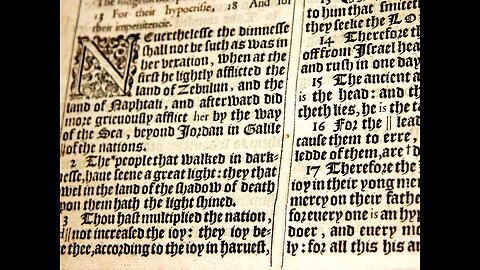 13 For their hypocrisie, 18 And for
their impenitencie.
NEuerthelesse the dimnesse
shall not be such as was in
her vexation, when at the
first he lightly afflicted the
land of Zebulun, and the
land of Naphtali, and afterward did
more grieuously afflict her by the way
of the Sea, beyond Iordan in Galile
of the nations.
2 The people that walked in dark-
nesse, haue seene a great light: they that
wel in the land of the shadow of death
vpon them hath the light shined.
3 Thou hast multiplied the nation,
|| not increased the ioy: they ioy be
e thee, according to the ioy in haruest,
to him that smitet
they seeke the LO
14 Therefore the
off from Israel hea
and rush in one day
15 The ancient a
is the head: and th
cheth lies, he is the ta
16 For the || lead
cause them to erre,
ledde of them, are d
17 Therefore the
ioy in their yong me
mercy on their father
for euery one is an hyp
doer, and euery mo
ly: for all this his an